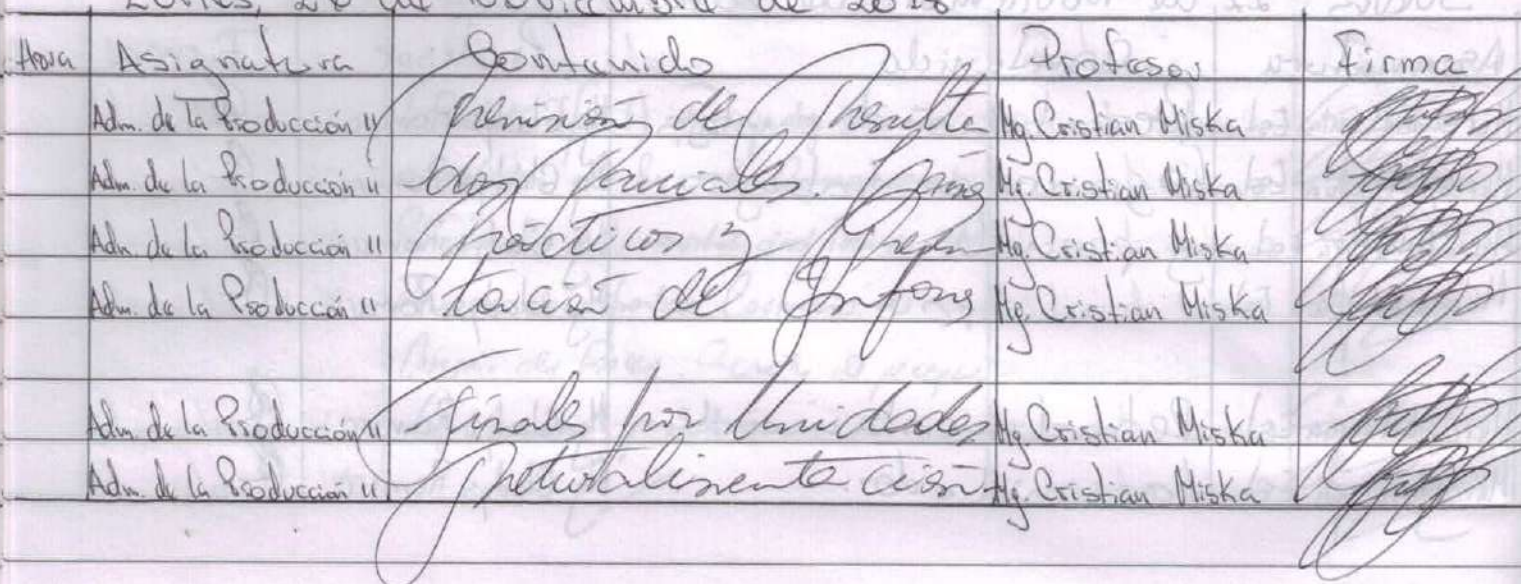 Lunes, de Noviembre de 2018
Hora Asignatura Contenido Profesor Firma
Adm. de la Producción II Revisión de Resulta Mg. Cristian Miska
Adm. de la Producción II dos Parciales. Mg. Cristian Miska
Adm. de la Producción II Prácticos y Presen Mg. Cristian Miska
Adm. de la Producción II tación de Mg. Cristian Miska
Adm. de la Producción II Finales por Unidades Mg. Cristian Miska
Adm. de la Producción II Retroalimentación Mg. Cristian Miska